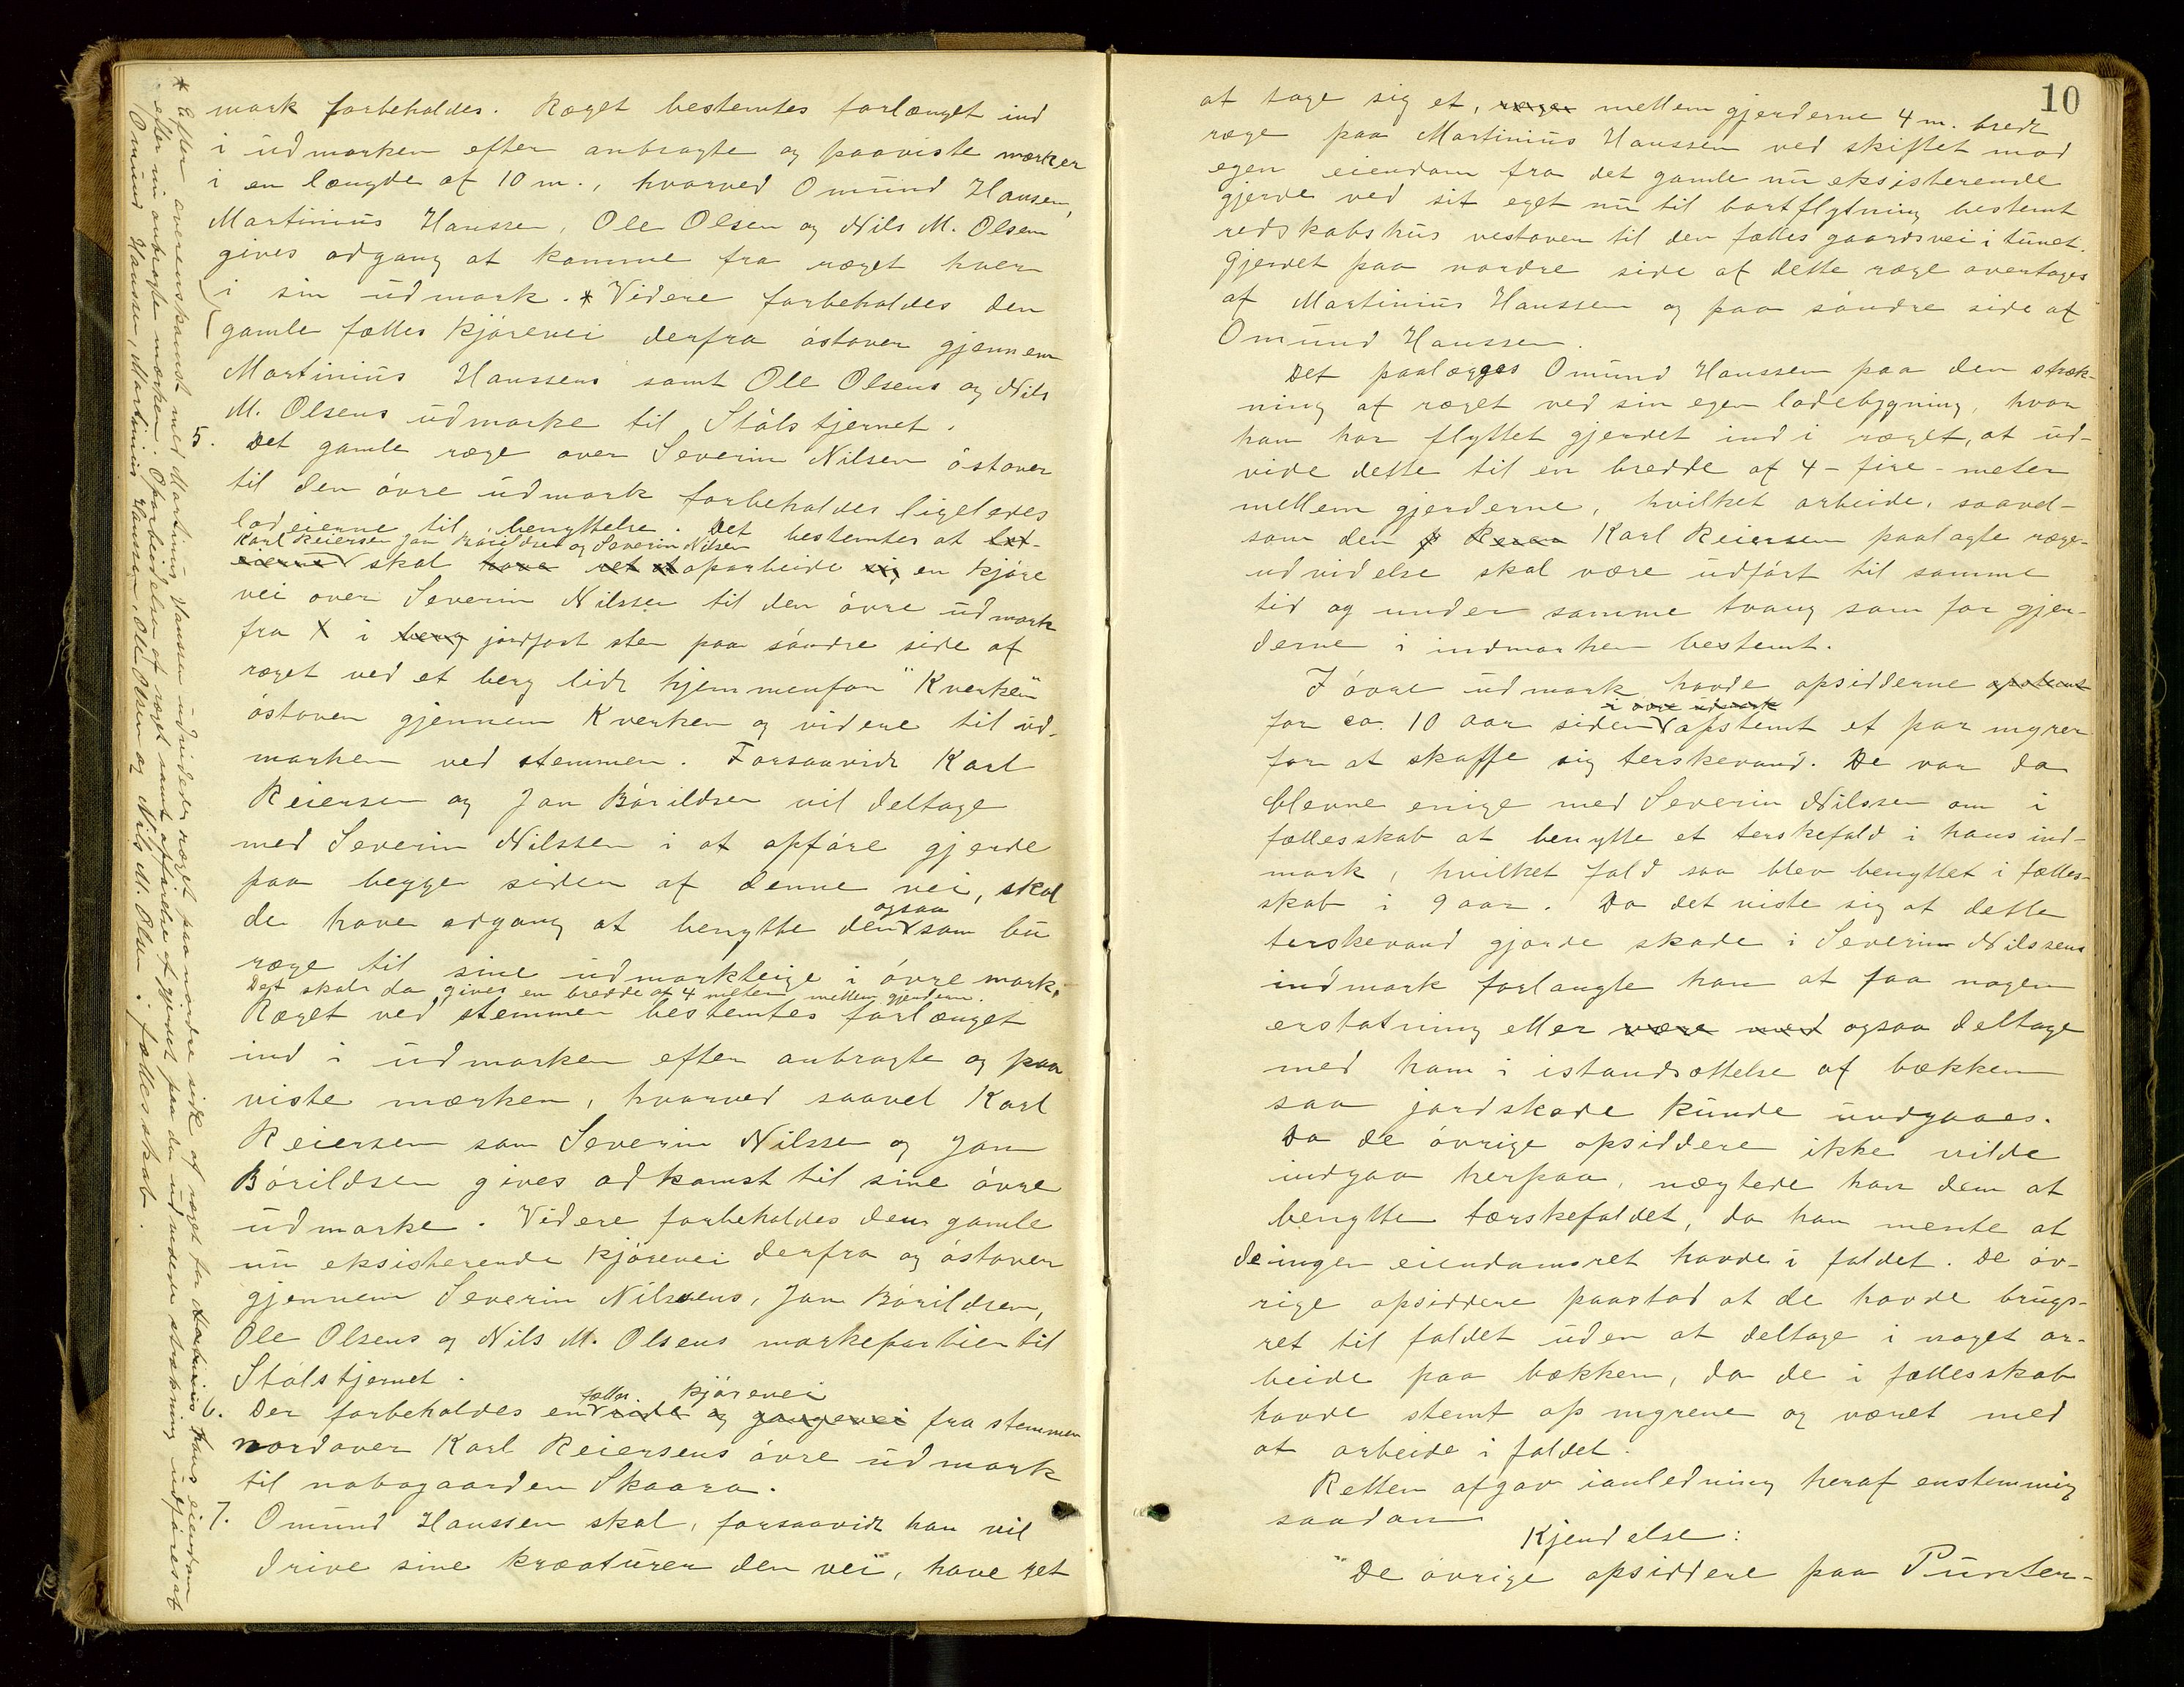 mark forbeholdes. Ræget bestemtes forlænget ind
i udmarken efter anbragte og paaviste mærker
i en længde af 10 m., hvorved Omund Hansen,
Martinius Hanssen, Ole Olsen og Nils M. Olsen
gives adgang at komme fra ræget hver
i sin udmark. * Videre forbeholdes den
gamle fælles kjørevei derfra østover gjennem
Martinius Hanssens samt Ole Olsens og Nils
M. Olsens udmarke til Stólstjernet.
5. Det gamle ræge over Severin Nilsen østover
til den øvre udmark forbeholdes ligeledes
lodeierne til benyttelse. Det bestemtes at lod-
Karl Reiersen Jan Børildsen og Severin Nilsen
eierne skal have ret at oparbeide sig en kjøre
vei over Severin Nilssen til den øvre udmark
fra X i berg jordfast sten paa søndre side af
ræget ved et berg lidt hjemmenfor "Kverken"
østover gjennem Kverken og videre til ud-
marken ved stemmen. Forsaavidt Karl
Reiersen og Jan Børildsen vil deltage
med Severin Nilssen i at opføre gjerde
paa begge sider af denne vei, skal
ogsaa
de have adgang at benytte den som bu
ræge til sine udmarkteige i øvre mark.
Det skal da gives en bredde af 4 meter mellem gjerderne.
Ræget ved stemmen bestemtes forlænget
ind i udmarken efter anbragte og paa
viste mærken, hvorved saavel Karl
Reiersen som Severin Nilssen og Jan
Børildsen gives adkomst til sine øvre
udmarke. Videre forbeholdes den gamle
nu eksisterende kjørevei derfra og østover
gjennem Severin Nilssens, Jan Børildsen,
Ole Olsens og Nils M. Olsens markepartier til
Stólstjernet.
fælles kjørevei
6. Der forbeholdes en ride og gangevei fra stemmen
nordover Karl Reiersens øvre udmark
til nabogaarden Skaara.
7. Omund Hanssen skal, forsaavidt han vil
drive sine kræaturer den vei, have ret
* Efter overenskomst med Martinus Hanssen udvider ræget paa nordre side af ræget for Martinius Hans eiendom
efter nu anbragte mærken. Oparbeidelsen af ræget samt opførelse af gjerdet paa den udvidede strækning udføres af
Omund Hanssen, Martinius Hanssen, Ole Olsen og Nils M. Olsen i fællesskab.
10
at tage sig et, ræge mellem gjerderne 4 m. bredt
ræge paa Martinius Hanssen ved skiftet mod
egen eiendom fra det gamle nu eksisterende
gjerde ved sit eget nu til bortflytning bestemt
redskabshus vestover til den fælles gaardsvei i tunet.
Gjerdet paa nordre side af dette ræge overtages
af Martinius Hanssen og paa søndre side af
Omund Hanssen.
Det paalægges Omund Hanssen paa den stræk-
ning af ræget ved sin egen ladebygning, hvor
han har flyttet gjerdet ind i ræget, at ud-
vide dette til en bredde af 4 - fire - meter
mellem gjerderne, hvilket arbeide, saavel-
som den Karl Reiersen paalagte ræge-
udvidelse skal være udført til samme
tid og under samme tvang som for gjer-
derne i indmarken bestemt.
I øvre udmark havde opsidderne opstemt
i øvre udmark
for ca. 10 aar siden opstemt et par myrer
for at skaffe sig terskevand. De var da
blevne enige med Severin Nilssen om i
fællesskab at benytte et terskefald i hans ind-
mark, hvilket fald saa blev benyttet i fælles-
skab i 9 aar. Da det viste sig at dette
terskevand gjorde skade i Severin Nilssens
indmark forlangte han at faa nogen
erstatning eller være med ogsaa deltage
med ham i istandsættelse af bækken
saa jordskade kunde undgaaes.
Da de øvrige opsiddere ikke vilde
indgaa herpaa, nægtede han dem at
benytte tærskefaldet, da han mente at
de ingen eiendomsret havde i faldet. De øv-
rige opsiddere paastod at de havde brugs-
ret til faldet uden at deltage i noget ar-
beide paa bækken, da de i fællesskab
havde stemt op myrene og været med
at arbeide i faldet.
Retten afgav ianledning heraf enstemmig
saadan
Kjendelse:
"De øvrige opsiddere paa Punter-